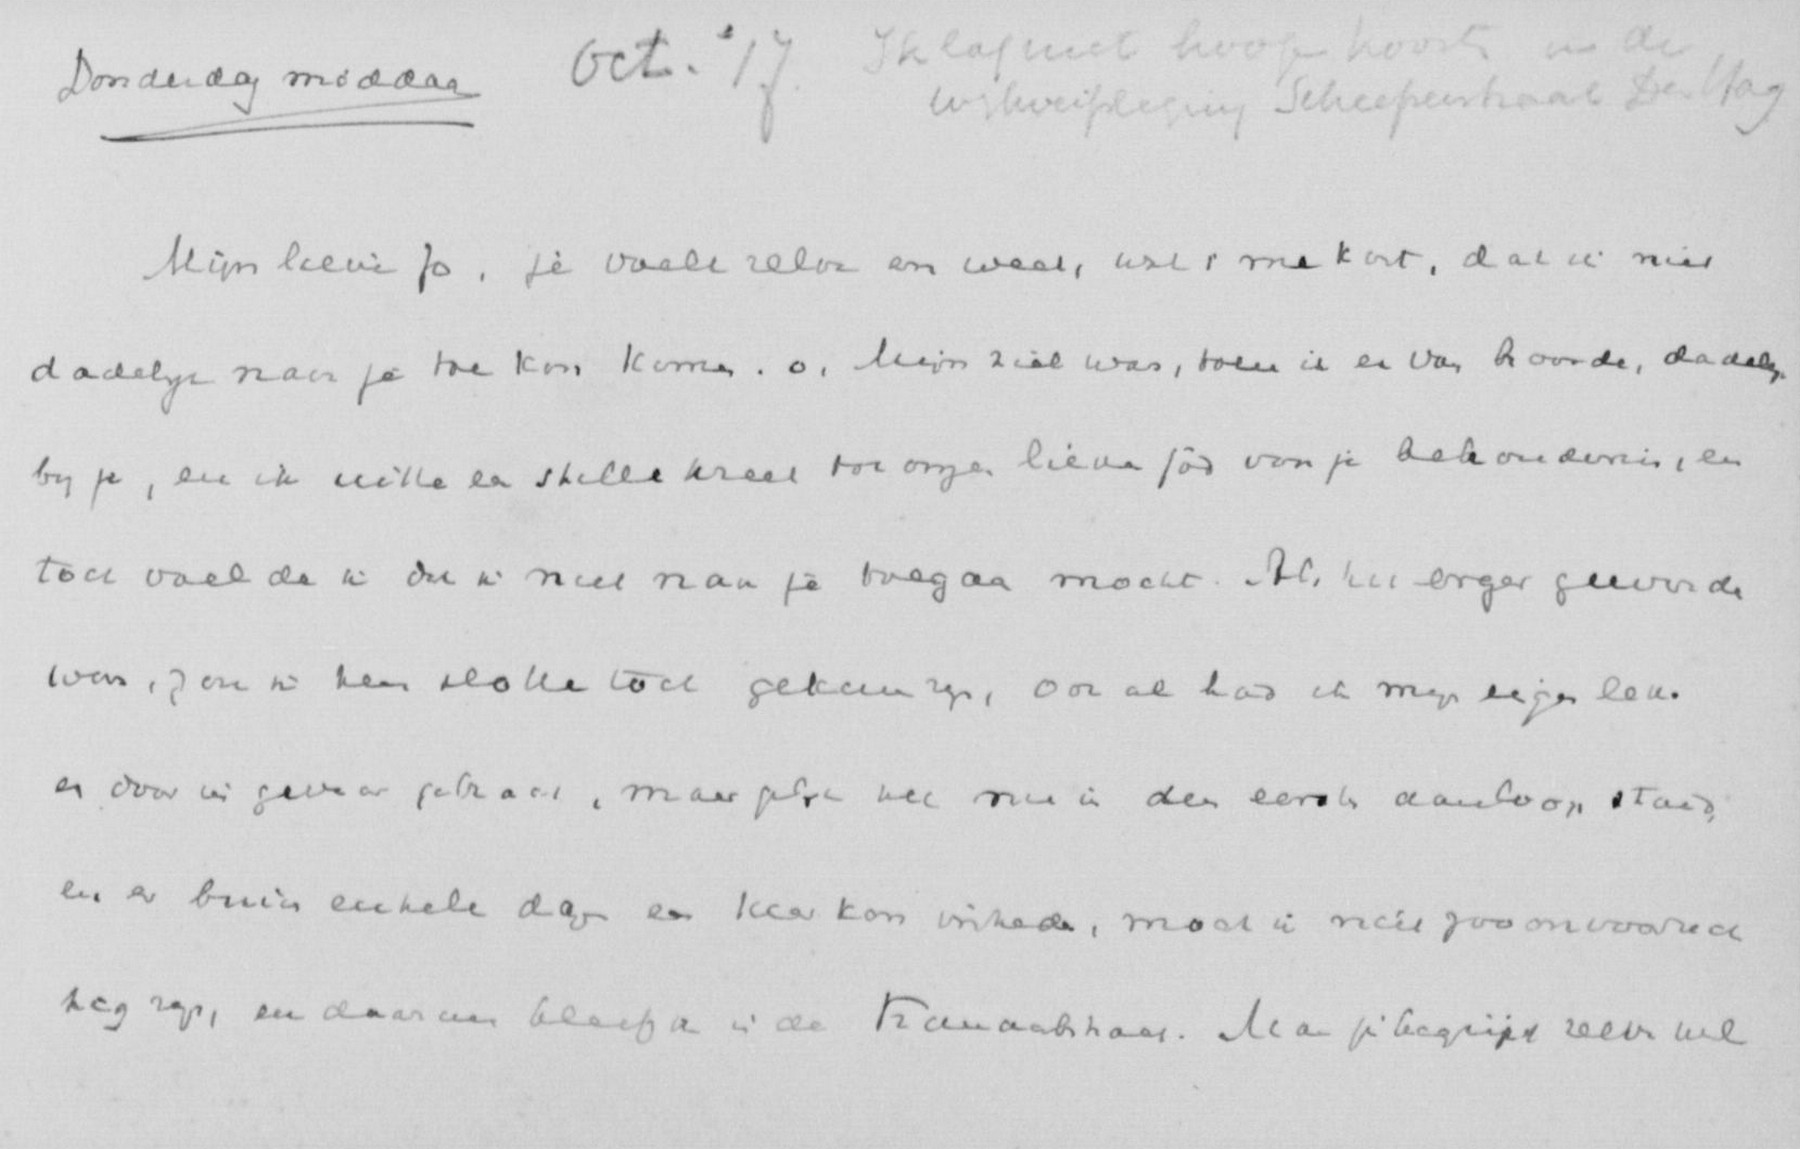 Donderdag middag Oct. '17. Ik lag met hooge koorts in de
wijkverpleging Scheepersstraat Den Haag
Mijn lieve Jo, je voelt zelve en weet, wat 't me kost, dat ik niet
dadelijk naar je toe kon komen. o, Mijn ziel was, toen ik er van hoorde, dadelijk
bij je, en ik uitte een stille kreet tot onzen lieven God van je behoudenis, en
toch voelde ik dat ik niet naar je toegaan mocht. Als het erger geworden
was, zou ik ten slotte toch gekomen zijn, ook al had ik mijn eigen leven
er door in gevaar gebracht, maar het nu in den eersten aanloop staat,
en er binnen enkele dagen een keer kon intreden, mocht ik niet zoo onvoorzichtig
zijn, en daarom bleef ik in de Kanaalstraat. Maar je begrijpt zelve wel